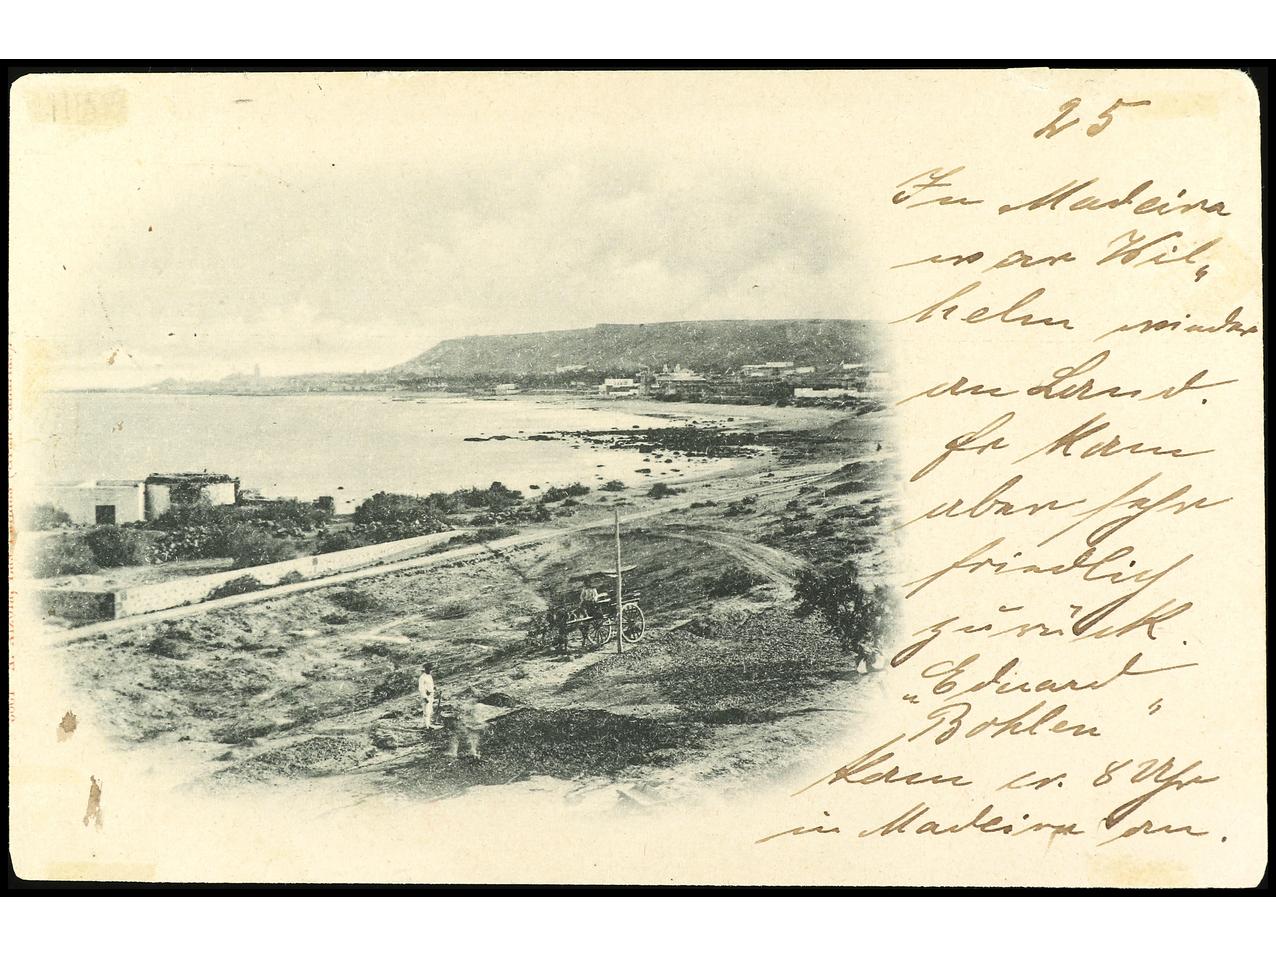 25
In Madeira
war Wil„
helm wieder
an Land.
Er kam
aber sehr
friedlich
zurück.
„Eduard
Bohlen"
kam cr. 8 Uhr
in Madeira an.